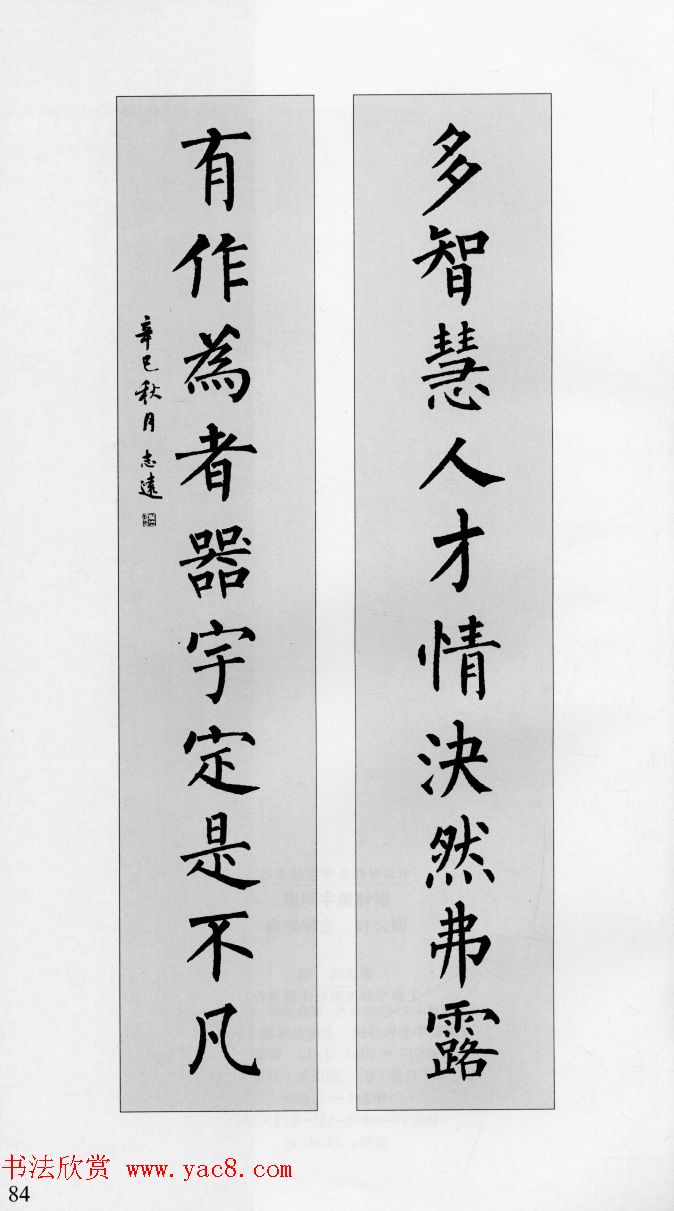 多智慧人才情決然弗露
有作為者器宇定是不凡
辛巳秋月 志遠
书法欣赏 www.yac8.com
84